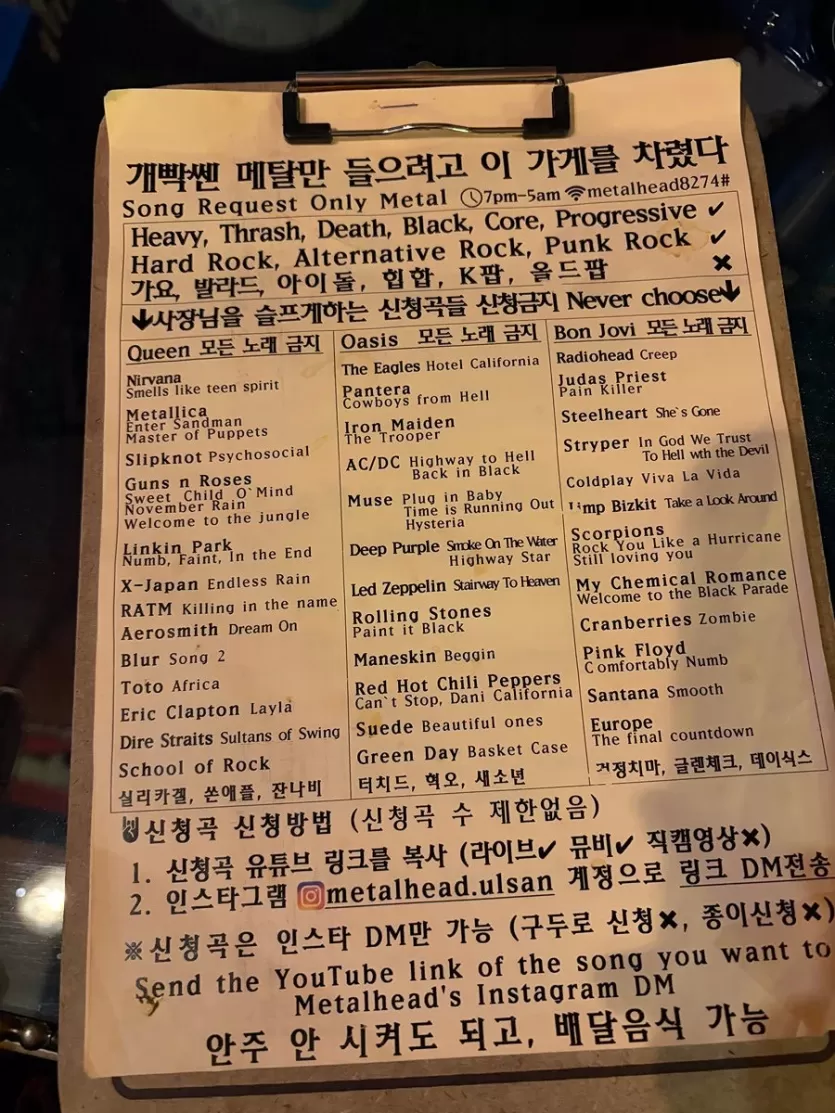 개빡쎈 메탈만 들으려고 이 가게를 차렸다
Song Request Only Metal 7pm-5am metalhead8274#
Heavy, Thrash, Death, Black, Core, Progressive ✔
Hard Rock, Alternative Rock, Punk Rock ✔
가요, 발라드, 아이돌, 힙합, K팝, 올드팝 ✖
↓사장님을 슬프게하는 신청곡들 신청금지 Never choose↓
Queen 모든 노래 금지
Nirvana
Smells like teen spirit
Metallica
Enter Sandman
Master of Puppets
Slipknot Psychosocial
Guns n Roses
Sweet Child O`Mind
November Rain
Welcome to the jungle
Linkin Park
Numb, Faint, In the End
X-Japan Endless Rain
RATM Killing in the name
Aerosmith Dream On
Blur Song 2
Toto Africa
Eric Clapton Layla
Dire Straits Sultans of Swing
School of Rock
실리카겔, 쏜애플, 잔나비
Oasis 모든 노래 금지
The Eagles Hotel California
Pantera
Cowboys from Hell
Iron Maiden
The Trooper
AC/DC Highway to Hell
Back in Black
Muse Plug in Baby
Time is Running Out
Hysteria
Deep Purple Smoke On The Water
Highway Star
Led Zeppelin Stairway To Heaven
Rolling Stones
Paint it Black
Maneskin Beggin
Red Hot Chili Peppers
Can`t Stop, Dani California
Suede Beautiful ones
Green Day Basket Case
터치드, 혁오, 새소년
Bon Jovi 모든 노래 금지
Radiohead Creep
Judas Priest
Pain Killer
Steelheart She`s Gone
Stryper In God We Trust
To Hell wth the Devil
Coldplay Viva La Vida
Limp Bizkit Take a Look Around
Scorpions
Rock You Like a Hurricane
Still loving you
My Chemical Romance
Welcome to the Black Parade
Cranberries Zombie
Pink Floyd
Comfortably Numb
Santana Smooth
Europe
The final countdown
검정치마, 글렌체크, 데이식스
🤘신청곡 신청방법 (신청곡 수 제한없음)
1. 신청곡 유튜브 링크를 복사 (라이브✔ 뮤비✔ 직캠영상✖)
2. 인스타그램 metalhead.ulsan 계정으로 링크 DM전송
※신청곡은 인스타 DM만 가능 (구두로 신청✖, 종이신청✖)
Send the YouTube link of the song you want to
Metalhead's Instagram DM
안주 안 시켜도 되고, 배달음식 가능